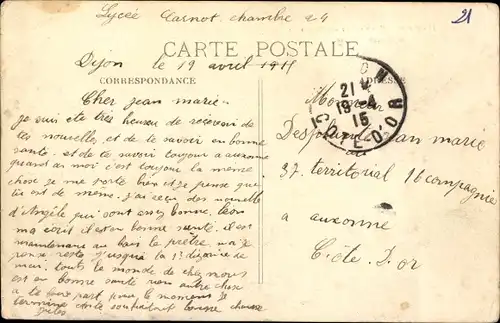 Lycée Carnot chambre 24
21
Dijon le 19 avril 1915
CARTE POSTALE
CORRESPONDANCE
ADRESSE
21
19-4
15
COTE-D'OR
Cher Jean marie
je suis été très heureu de recevoir de
tes nouvelles, et de te savoir en bonne
santé. et de te savoir toujour a auxonne
quand au moi c'est toujour la meme
chose je me porte bien et je pense que
toi est de même. J'ai reçu des nouvelle
d'Angèle qui sont assez bonne. Leon
ma écrit il est en bonne santé. il est
maintenant au bois le prêtre,
pense reste jusqu'a la
mai. touts le monde de chez nous
est en bonne santé rien autre chose
a te pour le moment je
termine carte souhaitant bonne chance
Monsieur
Jean marie
37. territorial 16 compagnie
a auxonne
Côte D'or